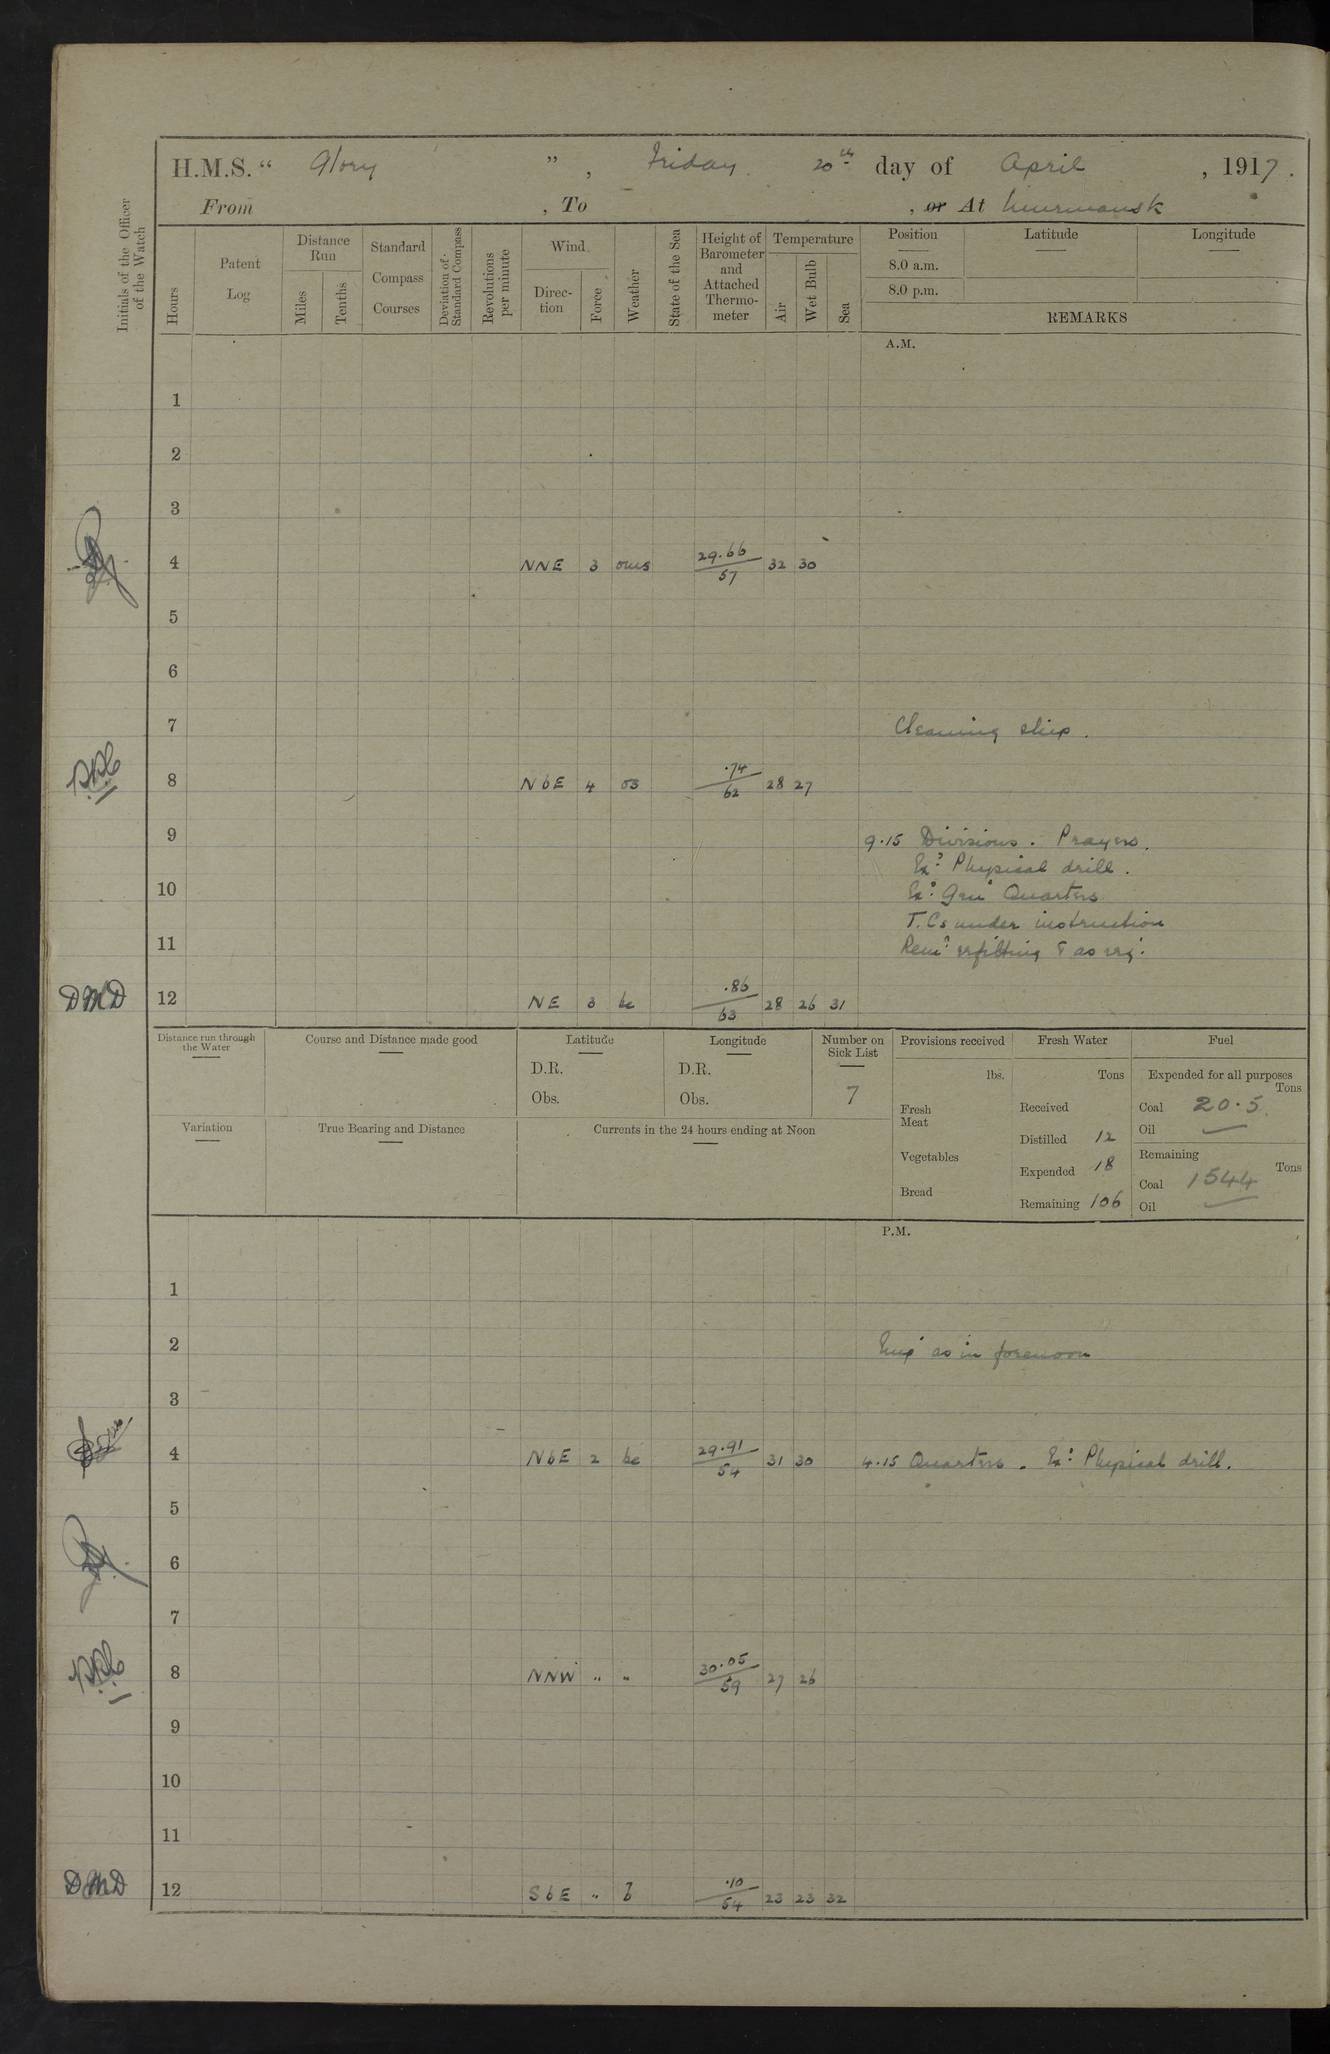 H.M.S. “ Glory ”, Friday 20th day of April, 1917.
From , To , or At Murmansk
Initials of the Officer of the Watch
Hours
Patent Log
Distance Run
Miles
Tenths
Standard Compass Courses
Deviation of Standard Compass
Revolutions per minute
Wind
Direction
Force
Weather
State of the Sea
Height of Barometer and Attached Thermometer
Temperature
Air
Wet Bulb
Sea
Position Latitude Longitude
8.0 a.m.
8.0 p.m.
REMARKS
A.M.
1
2
3
4 NNE 3 oms 29.66/57 32 30
5
6
7 Cleaning ship.
8 NbE 4 os .74/62 28 27
9 9.15 Divisions. Prayers.
Exd Physical drill.
10 Exd Genl Quarters
T.Cs under instruction
11 Remd refitting & as req.
DMD 12 NE 3 bc .86/63 28 26 31
Distance run through the Water
Course and Distance made good
Latitude
D.R.
Obs.
Longitude
D.R.
Obs.
Number on Sick List
7
Provisions received
lbs.
Fresh Meat
Vegetables
Bread
Fresh Water
Tons
Received
Distilled 12
Expended 18
Remaining 106
Fuel
Expended for all purposes
Tons
Coal 20.5
Oil —
Remaining
Tons
Coal 1544
Oil —
Variation
True Bearing and Distance
Currents in the 24 hours ending at Noon
P.M.
1
2 Emp as in forenoon
3
4 NbE 2 bc 29.91/54 31 30 4.15 Quarters. Exd Physical drill.
5
6
7
8 NNW " " 30.05/59 27 26
9
10
11
DMD 12 SbE " b .10/54 23 23 32